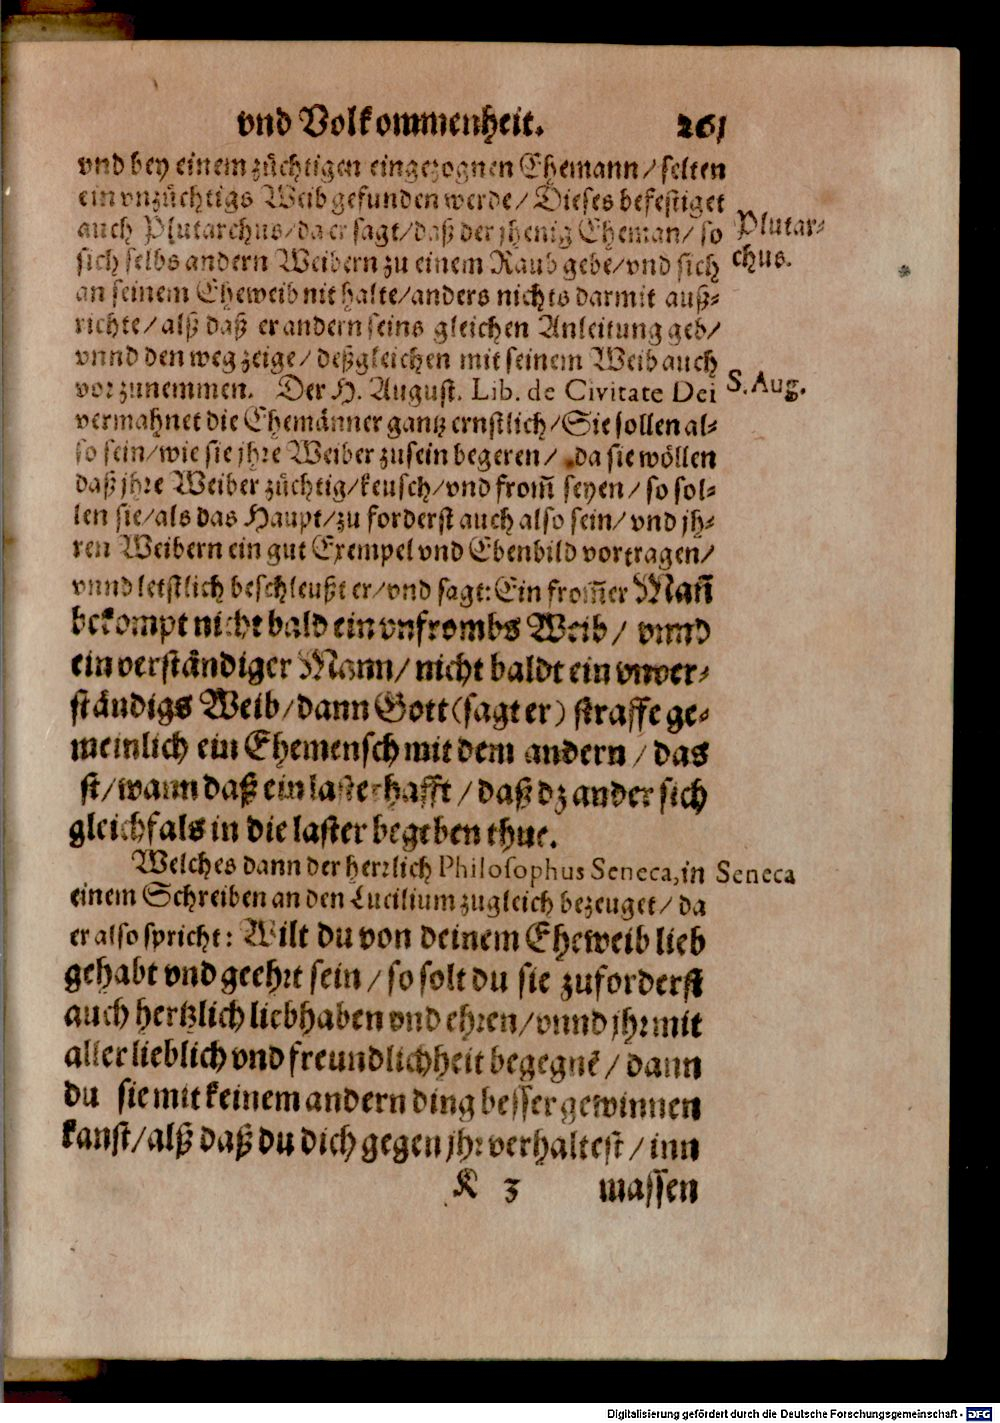 vnd Volkommenheit. 261
vnd bey einem züchtigen eingezognen Ehemann/ selten
ein vnzüchtigs Weib gefunden werde/ Dieses befestiget
auch Plutarchus/ da er sagt/ daß der jhenig Eheman/ so
Plutar-
sich selbs andern Weibern zu einem Raub gebe/ vnd sich
chus.
an seinem Eheweib nit halte/ anders nichts darmit auß-
richte/ alß daß er andern seins gleichen Anleitung geb/
vnnd den weg zeige/ deßgleichen mit seinem Weib auch
vorzunemmen. Der H. August. Lib. de Civitate Dei
S. Aug.
vermahnet die Ehemänner gantz ernstlich/ Sie sollen al-
so sein/ wie sie jhre Weiber zusein begeren/ da sie wöllen
daß jhre Weiber züchtig/ keusch/ vnd from̃ seyen/ so sol-
len sie/ als das Haupt/ zu forderst auch also sein/ vnd jh-
ren Weibern ein gut Exempel vnd Ebenbild vortragen/
vnnd letstlich beschleußt er/ vnd sagt: Ein from̃er Mañ
bekompt nicht bald ein vnfrombs Weib/ vnnd
ein verständiger Mann/ nicht baldt ein vnver-
ständigs Weib/ dann Gott (sagt er) straffe ge-
meinlich ein Ehemensch mit dem andern/ das
st/ wann daß ein lasterhafft/ daß dz ander sich
gleichfals in die laster begeben thue.
Welches dann der herrlich Philosophus Seneca, in
Seneca
einem Schreiben an den Lucilium zugleich bezeuget/ da
er also spricht: Wilt du von deinem Eheweib lieb
gehabt vnd geehrt sein/ so solt du sie zuforderst
auch hertzlich liebhaben vnd ehren/ vnnd jhr mit
aller lieblich vnd freundlichheit begegnẽ/ dann
du sie mit keinem andern ding besser gewinnen
kanst/ alß daß du dich gegen jhr verhaltest/ inn
K 3 massen
Digitalisierung gefördert durch die Deutsche Forschungsgemeinschaft - DFG